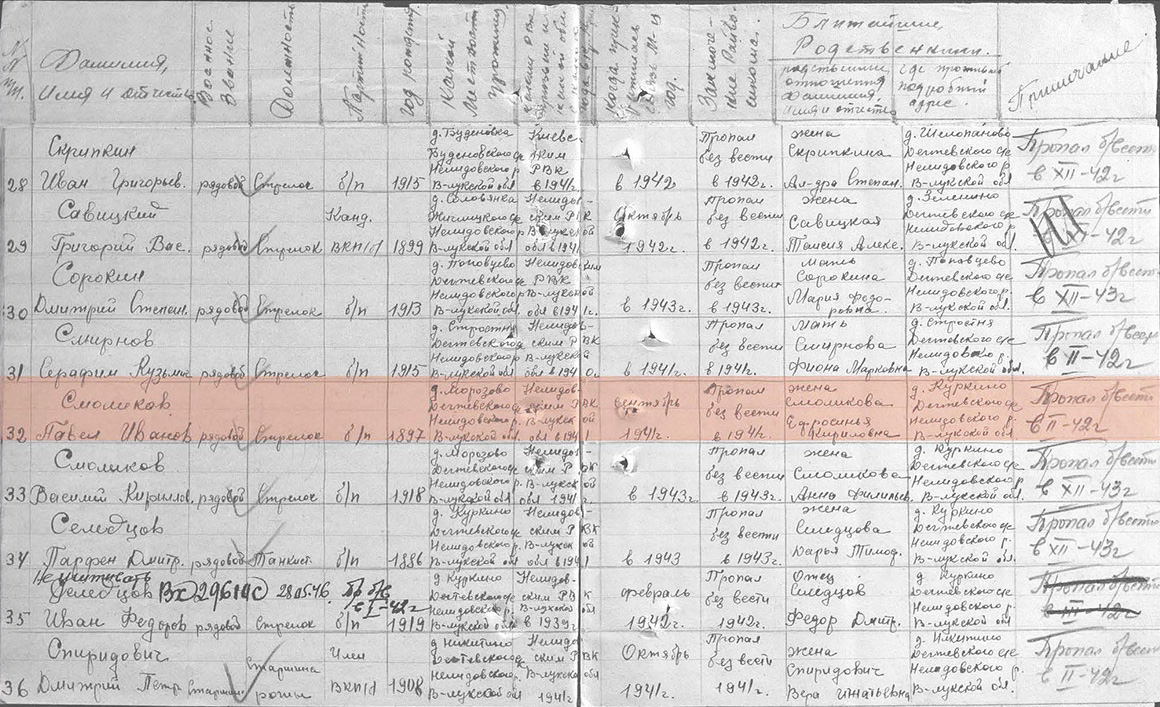 № п/п.
Фамилия, Имя и отчество
Военное звание
Должность
Партийность
Год рождения
Какой местности уроженец
Когда прекратилась связь М-ц год.
Заключение Райвоенкома.
Ближайшие Родственники.
родственные отношения Фамилия Имя и отчество
где проживает подробный адрес.
Примечание
28 Скрипкин Иван Григорьев. рядовой Стрелок б/п 1915 д. Буденовка Буденовского с/с Нелидовского р В-лукской обл Киевским РВК в 1941г. в 1942 Пропал без вести в 1942г. жена Скрипкина Ал-дра Степан. д. Шелопаново Дегтевского с/с Нелидовского р. В-лукской обл Пропал б/вести в XII-42г
29 Савицкий Григорий Вас. рядовой Стрелок Канд. ВКП/б 1899 Нелидовского р В-лукской обл Нелидовским РВК В-лукской обл в 1941г Октябрь 1942г. Пропал без вести в 1942г. жена Савицкая Таисия Алекс. д. Зеленино Дегтевского с/с Нелидовского р. В-лукской обл Пропал б/вести -42г
30 Сорокин Дмитрий Степан. рядовой Стрелок б/п 1913 д. Поповцево Дегтевского с/с Нелидовского р В-лукской обл. Нелидовским РВК В-лукской обл в 1941г в 1943г. Пропал без вести в 1943г. Мать Сорокина Мария Федоровна. д. Поповцево Дегтевского с/с Нелидовского р. В-лукской обл. Пропал б/вест в XII-43г
31 Смирнов Серафим Кузьма рядовой Стрелок б/п 1915 д. Стростня Дегтевского с/с Нелидовского р В-лукской обл Нелидовским РВК В-лукской в 1941г. Пропал без вести в 1941г. Мать Смирнова Фиона Марковна д. Стростня Дегтевского с/с Нелидовского р В-лукской обл. Пропал б/вести в II-42г
32 Смоликов Павел Иванов рядовой Стрелок б/п 1897 д. Морозово Дегтевского с/с Нелидовского р В-лукской обл Нелидовским РВК В-лукской обл в 1941 сентябрь 1941г. Пропал без вести в 1941г. жена Смоликова Ефросинья Кириловна д. Куркино Дегтевского с/с Нелидовского р. В-лукской обл. Пропал б/вести в II-42г
33 Смоликов Василий Кириллов. рядовой Стрелок б/п 1918 д. Морозово Дегтевского с/с Нелидовского р. В-лукской обл Нелидовским РВК В-лукской обл 1941г в 1943г. Пропал без вести в 1943г. жена Смоликова Анна Филипьев. д. Куркино Дегтевского с/с Нелидовского р. В-лукской обл. Пропал б/вести в XII-43г
34 Селедцов Парфен Дмитр. рядовой Танкист. б/п 1886 д. Куркино Дегтевского с/с Нелидовского р В-лукской обл Нелидовским РВК В-лукской обл в 1941 в 1943 Пропал без вести в 1943г. жена Селедцова Дарья Тимоф. д. Куркино Дегтевского с/с Нелидовского р. В-лукской обл. Пропал б/вести в XII-43г
Не учитывать Вх 29614с 28.05.46. Пр б/в в I-42г
35 Селедцов Иван Федоров рядовой Стрелок б/п 1919 д Куркино Дегтевского с/с Нелидовского р. В-лукской обл Нелидовским РВК В-лукской обл в 1939г. февраль 1942г. Пропал без вести 1942г. Отец Селедцов Федор Дмитр. д Куркино Дегтевского с/с Нелидовского р. В-лукской обл. Пропал б/вести в III-42г
36 Спиридович Дмитрий Петр Старшина старшина роты Член ВКП/б 1908 д Никитино Дегтевского с/с Нелидовского р. В-лукской обл. Нелидовским РВК В-лукской обл 1941г Октябрь 1941г. Пропал без вести 1941г. жена Спиридович Вера Игнатьевна д. Никитино Дегтевского с/с Нелидовского р. В-лукской обл. Пропал б/вести в II-42г